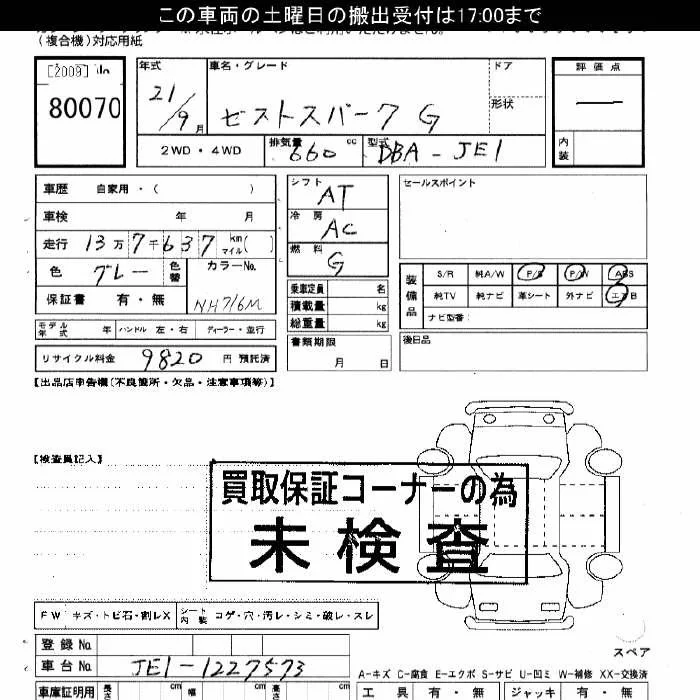 この車両の土曜日の搬出受付は17:00まで
(複合機)対応用紙
[2009] No
80070
年式
21/9月
車名・グレード
ゼストスパーク G
ドア
形状
評価点
内装
2WD・4WD
排気量 660 cc
型式 DBA-JE1
車歴 自家用・( )
車検 年 月
走行 13万7千637 km マイル( )
色 グレー 色替
カラーNo. NH716M
保証書 有・無
シフト AT
冷房 AC
燃料 G
乗車定員 名
積載量 kg
総重量 kg
書類期限
月 日
セールスポイント
装備品
S/R 純A/W P/S P/W ABS
純TV 純ナビ 革シート 外ナビ エアB
ナビ型番:
後日品
モデル年式 年 ハンドル 左・右 ディーラー・並行
リサイクル料金 9820 円 預託済
【出品店申告欄(不良箇所・欠品・注意事項等)】
【検査員記入】
買取保証コーナーの為
未検査
FW キズ・トビ石・割レX
シート内装 コゲ・穴・汚レ・シミ・破レ・スレ
スペア
登録No.
車台No. JE1-1227573
A-キズ C-腐食 E-エクボ S-サビ U-凹ミ W-補修 XX-交換済
車庫証明用 長さ cm 幅 cm 高さ cm
工具 有・無 ジャッキ 有・無